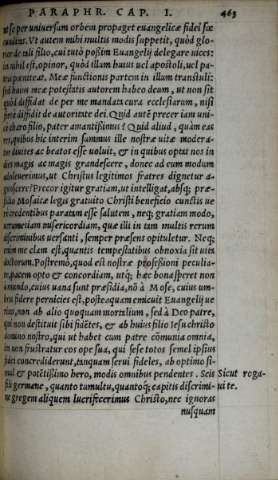 PARAPHR. CAP. I. 463
ut se per universam orbem propaget euangelicæ fidei fœ
cunditas. Ut autem mihi multis modis suppetit, quod glo-
rier de tali filio, cui tuto possim Euangelij delegare uices:
ita nihil est, opinor, quod illum huius uel apostoli, uel pa-
tris pœniteat. Meæ functionis partem in illum transtuli:
sed huius meæ potestatis autorem habeo deum, ut non sit
quòd diffidat de per me mandata cura ecclesiarum, nisi
forte diffidit de autoritate dei. Quid autē precer iam uni-
co charo filio, pater amantissimus? Quid aliud, quàm eas
res, quibus hic interim summus ille nostræ uitæ modera-
tor suos ac beatos esse uoluit, & in quibus optat nos in
dies magis ac magis grandescere, donec ad eum modum
adoleuerimus, ut Christus legitimos fratres dignetur a-
gnoscere? Precor igitur gratiam, ut intelligat, absq; præ-
sidio Mosaicæ legis gratuito Christi beneficio cunctis ue
re credentibus paratam esse salutem, neq; gratiam modo,
uerumetiam misericordiam, quæ illi in tam multis rerum
discriminibus uersanti, semper præsens opituletur. Neq;
enim me clam est, quantis tempestatibus obnoxia sit uita
doctorum. Postremò, quod est nostræ professioni peculia-
re, pacem opto & concordiam, utq; hæc bona speret non
à mundo, cuius uana sunt præsidia, nō à Mose, cuius um-
bris fidere pernicies est, posteaquam emicuit Euangelij ue
ritas, non ab alio quoquam mortalium, sed à Deo patre,
qui non destituit sibi fidētes, & ab huius filio Iesu christo
domino nostro, qui ut habet cum patre cōmunia omnia,
ita non frustratur eos ope sua, qui sese totos semel ipsius
fidei concrediderunt, tanquam serui fideles, ab optimo si-
mul & potētissimo hero, modis omnibus pendentes. Scis Sicut roga-
fili germane, quanto tumultu, quantoq; capitis discrimi- ui te.
ne gregem aliquem lucrifecerimus Christo, nec ignoras
nusquam